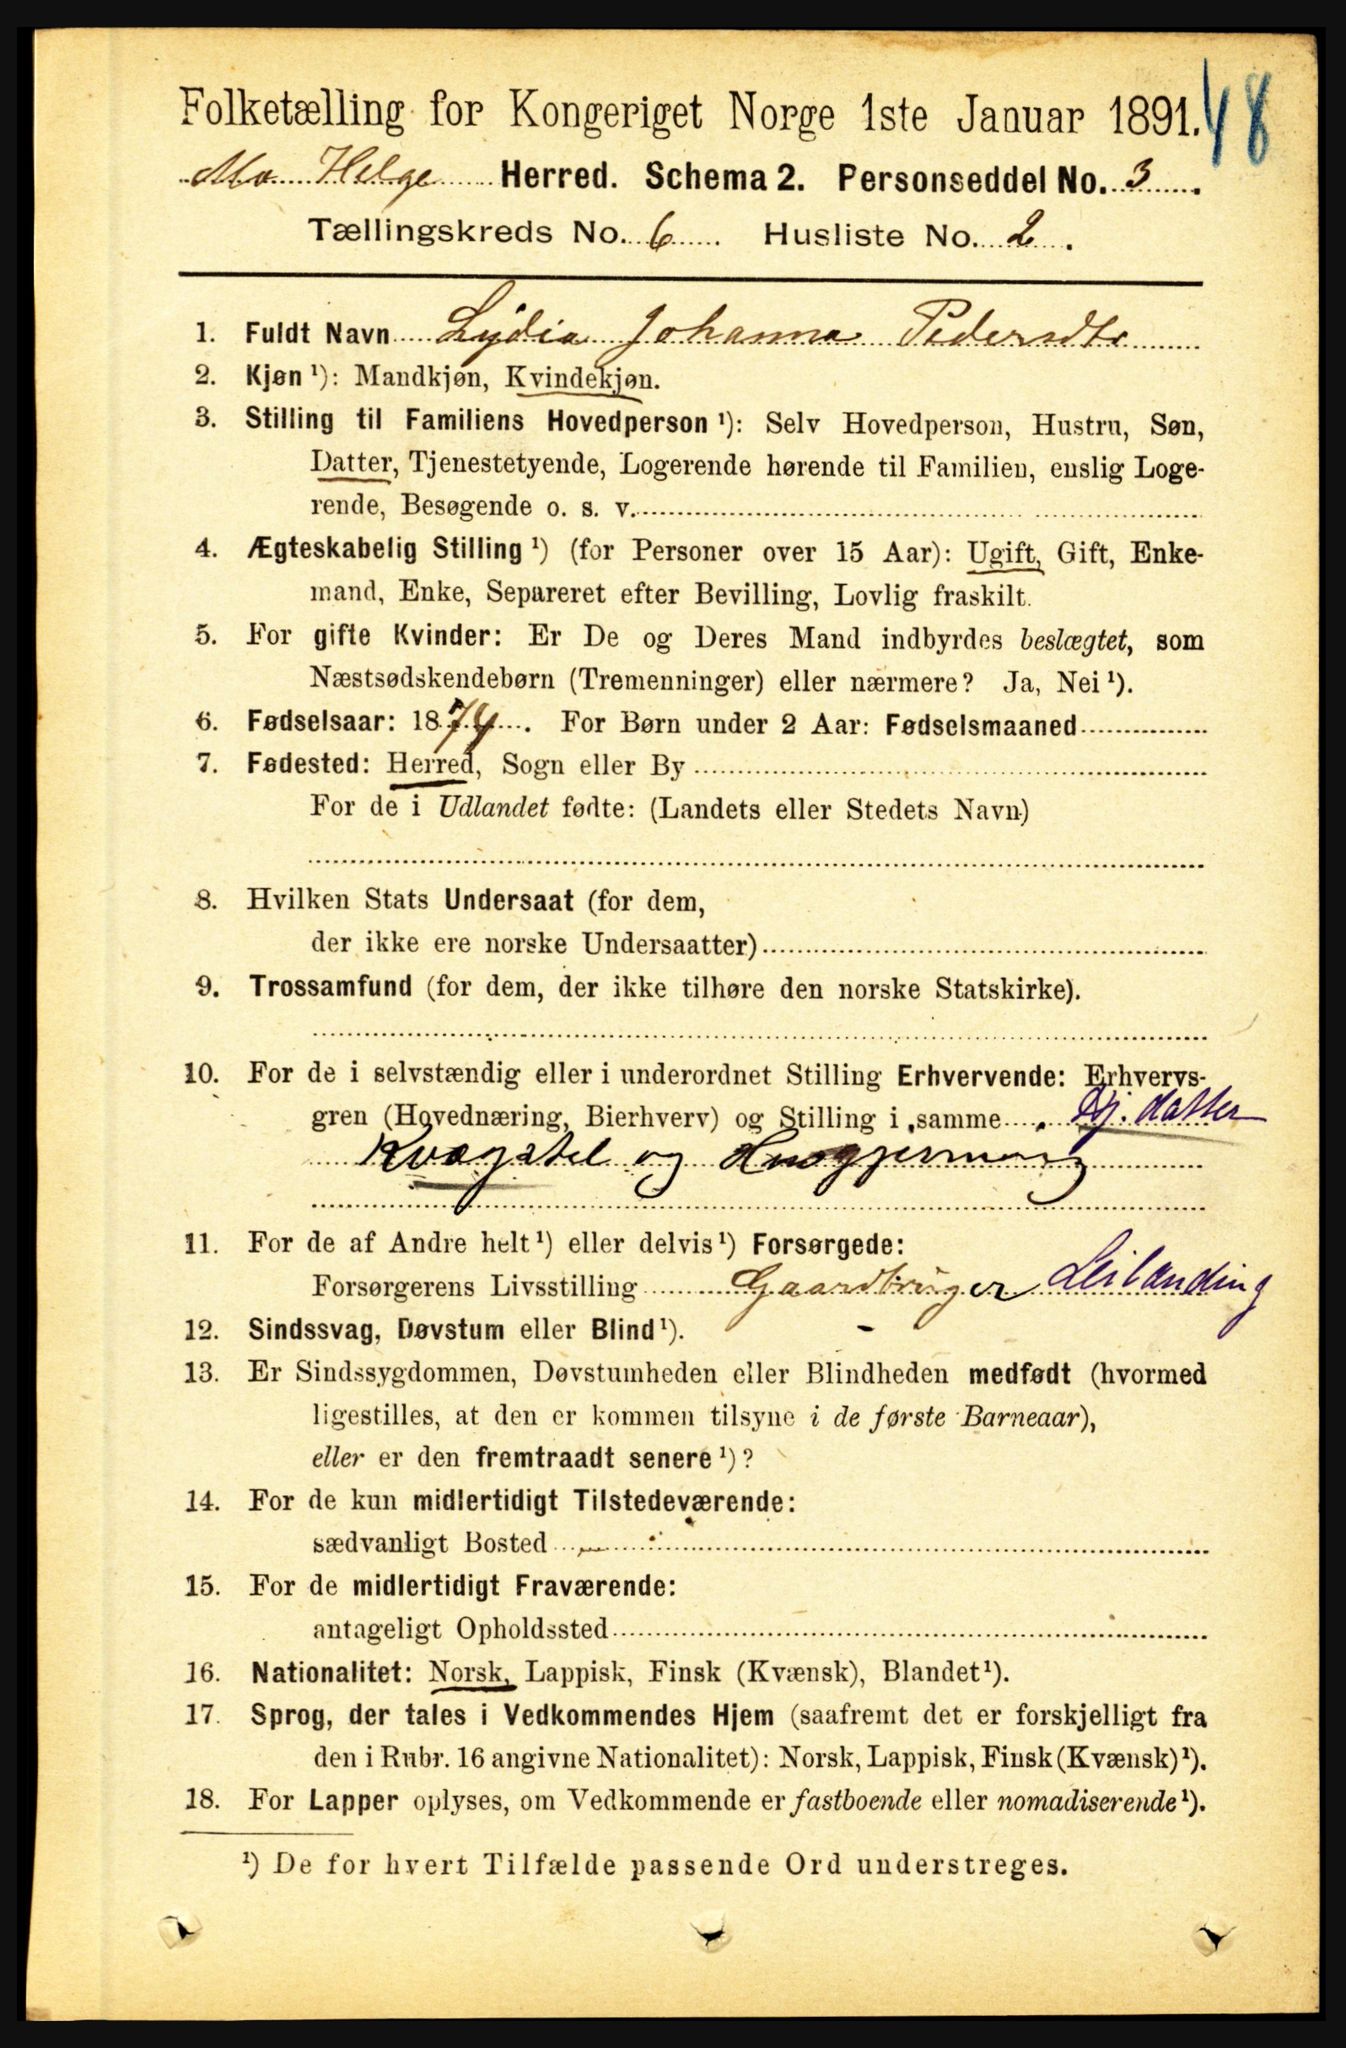 Folketælling for Kongeriget Norge 1ste Januar 1891. 48
Mo Helge Herred. Schema 2. Personseddel No. 3.
Tællingskreds No. 6 Husliste No. 2.
1. Fuldt Navn Lydia Johanna Pedersdtr
2. Kjøn ¹): Mandkjøn, Kvindekjøn.
3. Stilling til Familiens Hovedperson ¹): Selv Hovedperson, Hustru, Søn,
Datter, Tjenestetyende, Logerende hørende til Familien, enslig Loge-
rende, Besøgende o. s. v.
4. Ægteskabelig Stilling ¹) (for Personer over 15 Aar): Ugift, Gift, Enke-
mand, Enke, Separeret efter Bevilling, Lovlig fraskilt.
5. For gifte Kvinder: Er De og Deres Mand indbyrdes beslægtet, som
Næstsødskendebørn (Tremenninger) eller nærmere? Ja, Nei ¹).
6. Fødselsaar: 1874. For Børn under 2 Aar: Fødselsmaaned
7. Fødested: Herred, Sogn eller By
For de i Udlandet fødte: (Landets eller Stedets Navn)
8. Hvilken Stats Undersaat (for dem,
der ikke ere norske Undersaatter)
9. Trossamfund (for dem, der ikke tilhøre den norske Statskirke).
10. For de i selvstændig eller i underordnet Stilling Erhvervende: Erhvervs-
gren (Hovednæring, Bierhverv) og Stilling i samme Hj. datter
Kvægstel og Husgjerning
11. For de af Andre helt ¹) eller delvis ¹) Forsørgede:
Forsørgerens Livsstilling Gaardbruger Leilænding
12. Sindssvag, Døvstum eller Blind ¹). -
13. Er Sindssygdommen, Døvstumheden eller Blindheden medfødt (hvormed
ligestilles, at den er kommen tilsyne i de første Barneaar),
eller er den fremtraadt senere ¹)?
14. For de kun midlertidigt Tilstedeværende:
sædvanligt Bosted
15. For de midlertidigt Fraværende:
antageligt Opholdssted
16. Nationalitet: Norsk, Lappisk, Finsk (Kvænsk), Blandet ¹).
17. Sprog, der tales i Vedkommendes Hjem (saafremt det er forskjelligt fra
den i Rubr. 16 angivne Nationalitet): Norsk, Lappisk, Finsk (Kvænsk) ¹).
18. For Lapper oplyses, om Vedkommende er fastboende eller nomadiserende ¹).
¹) De for hvert Tilfælde passende Ord understreges.